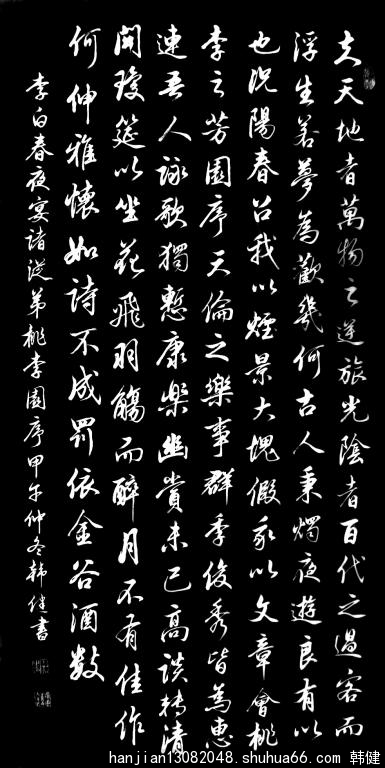 夫天地者萬物之逆旅光陰者百代之過客而
浮生若夢為歡幾何古人秉燭夜遊良有以
也況陽春召我以煙景大塊假我以文章會桃
李之芳園序天倫之樂事群季俊秀皆為惠
連吾人詠歌獨慙康樂幽賞未已高談轉清
開瓊筵以坐花飛羽觴而醉月不有佳作
何伸雅懷如詩不成罰依金谷酒數
李白春夜宴諸從弟桃李園序甲午仲冬韓健書
hanjian13082048.shuhua66.com 韩健